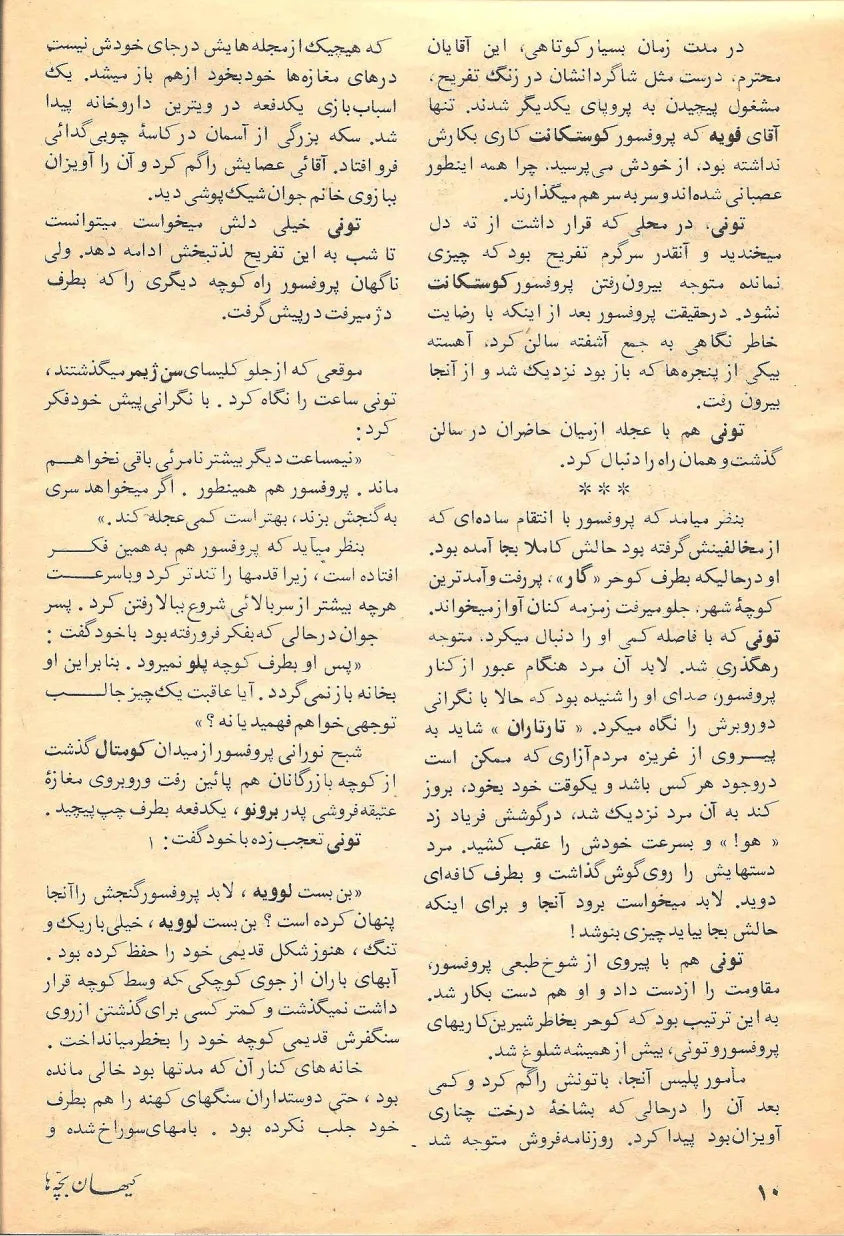 در مدت زمان بسیار کوتاهی، این آقایان
محترم، درست مثل شاگردانشان در زنگ تفریح،
مشغول پیچیدن به پروپای یکدیگر شدند. تنها
آقای فویه که پروفسور کوستکانت کاری بکارش
نداشته بود، از خودش می‌پرسید، چرا همه اینطور
عصبانی شده‌اند و سر به سر هم میگذارند.
تونی، در محلی که قرار داشت از ته دل
میخندید و آنقدر سرگرم تفریح بود که چیزی
نمانده متوجه بیرون رفتن پروفسور کوستکانت
نشود. درحقیقت پروفسور بعد از اینکه با رضایت
خاطر نگاهی به جمع آشفته سالن کرد، آهسته
بیکی از پنجره‌ها که باز بود نزدیک شد و از آنجا
بیرون رفت.
تونی هم با عجله ازمیان حاضران در سالن
گذشت و همان راه را دنبال کرد.
***
بنظر میامد که پروفسور با انتقام ساده‌ای که
از مخالفینش گرفته بود حالش کاملا بجا آمده بود.
او درحالیکه بطرف کوحر «گار»، پر رفت وآمدترین
کوچهٔ شهر، جلو میرفت زمزمه کنان آواز میخواند.
تونی که با فاصله کمی او را دنبال میکرد، متوجه
رهگذری شد. لابد آن مرد هنگام عبور از کنار
پروفسور، صدای او را شنیده بود که حالا با نگرانی
دوروبرش را نگاه میکرد. « تارتاران » شاید به
پیــروی از غریزه مردم‌آزاری که ممکن است
دروجود هر کس باشد و یکوقت خود بخود، بروز
کند به آن مرد نزدیک شد، درگوشش فریاد زد
« هو! » و بسرعت خودش را عقب کشید. مرد
دستهایش را روی گوش گذاشت و بطرف کافه‌ای
دوید. لابد میخواست برود آنجا و برای اینکه
حالش بجا بیاید چیزی بنوشد!
تونی هم با پیروی از شوخ طبعی پروفسور،
مقاومت را ازدست داد و او هم دست بکار شد.
به این ترتیب بود که کوحر بخاطر شیرین کاریهای
پروفسور و تونی، بیش از همیشه شلوغ شد.
مأمور پلیس آنجا، باتونش را گم کرد و کمی
بعد آن را درحالی که بشاخهٔ درخت چناری
آویزان بود پیدا کرد. روزنامه فروش متوجه شد
که هیچیک از مجله هایش درجای خودش نیست
درهای مغازه‌ها خودبخود ازهم باز میشد. یک
اسباب‌بازی یکدفعه در ویترین داروخانه پیدا
شد. سکه بزرگی از آسمان درکاسهٔ چوبی گدائی
فرو افتاد. آقائی عصایش را گم کرد و آن را آویزان
ببازوی خانم جوان شیک پوشی دید.
تونی خیلی دلش میخواست میتوانست
تا شب به این تفریح لذتبخش ادامه دهد. ولی
ناگهان پروفسور راه کوچه دیگری را که بطرف
دژ میرفت درپیش گرفت.
موقعی که از جلو کلیسای سن ژیمر میگذشتند،
تونی ساعت را نگاه کرد . با نگرانی پیش خود فکر
کرد:
«نیمساعت دیگر بیشتر نامرئی باقی نخواهــم
ماند . پروفسور هم همینطور . اگر میخواهد سری
به گنجش بزند، بهتر است کمی عجله کند .»
بنظر میآید که پروفسور هم به همین فکـــر
افتاده است، زیرا قدمها را تندتر کرد وباسرعــت
هرچه بیشتر از سربالائی شروع ببالا رفتن کرد . پسر
جوان درحالی که بفکر فرورفته بود باخود گفت :
«پس او بطرف کوچه پلو نمیرود . بنابراین او
بخانه باز نمی گردد . آیا عاقبت یک چیز جالـــب
توجهی خواهم فهمید یا نه ؟ »
شبح نورانی پروفسور از میدان کومتال گذشت
از کوچه بازرگانان هم پائین رفت وروبروی مغازهٔ
عتیقه فروشی پدر برونو، یکدفعه بطرف چپ پیچید .
تونی تعجب زده باخود گفت : ۱
«بن بست لوویه ، لابد پروفسور گنجش راآنجا
پنهان کرده است ؟ بن بست لوویه ، خیلی باریک و
تنگ ، هنوز شکل قدیمی خود را حفظ کرده بود .
آبهای باران از جوی کوچکی که وسط کوچه قرار
داشت نمیگذشت و کمتر کسی برای گذشتن ازروی
سنگفرش قدیمی کوچه خود را بخطر میانداخت .
خانه های کنار آن که مدتها بود خالی مانده
بود ، حتی دوستداران سنگهای کهنه را هم بطرف
خود جلب نکرده بود . بامهای سوراخ شده و
۱۰
کیهان بچه‌ها